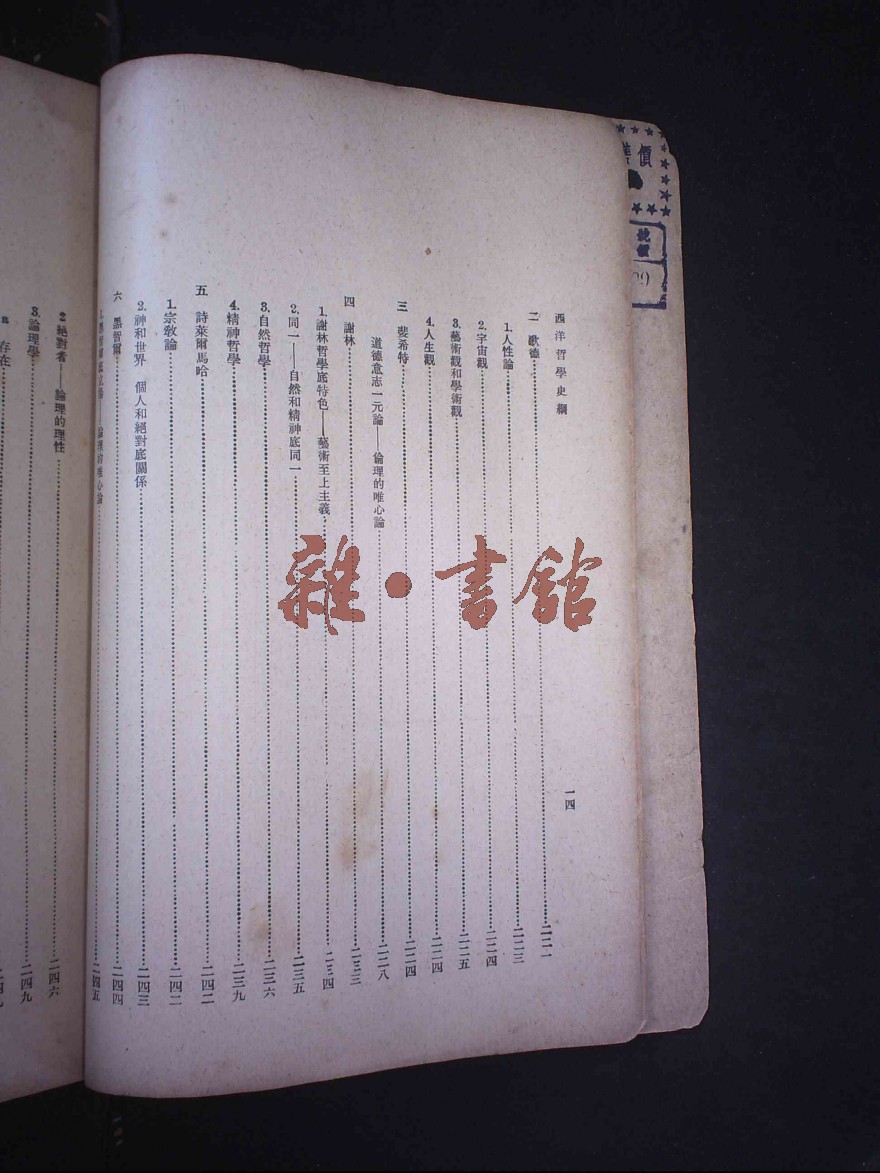 西洋哲學史綱
一四
二 歌德 二二一
1.人性論 二二三
2.宇宙觀 二二四
3.藝術觀和學術觀 二二五
4.人生觀 二二四
三 斐希特 二二四
道德意志一元論——倫理的唯心論 二二八
四 謝林 二三三
1.謝林哲學底特色——藝術至上主義 二三四
2.同一——自然和精神底同一 二三五
3.自然哲學 二三六
4.精神哲學 二三九
五 詩萊爾馬哈 二四二
1.宗教論 二四二
2.神和世界 個人和絕對底關係 二四三
六 黑智爾 二四四
論理的唯心論 二四五
2.絕對者——論理的理性 二四六
3.論理學 二四九
存在
價
雜·書館